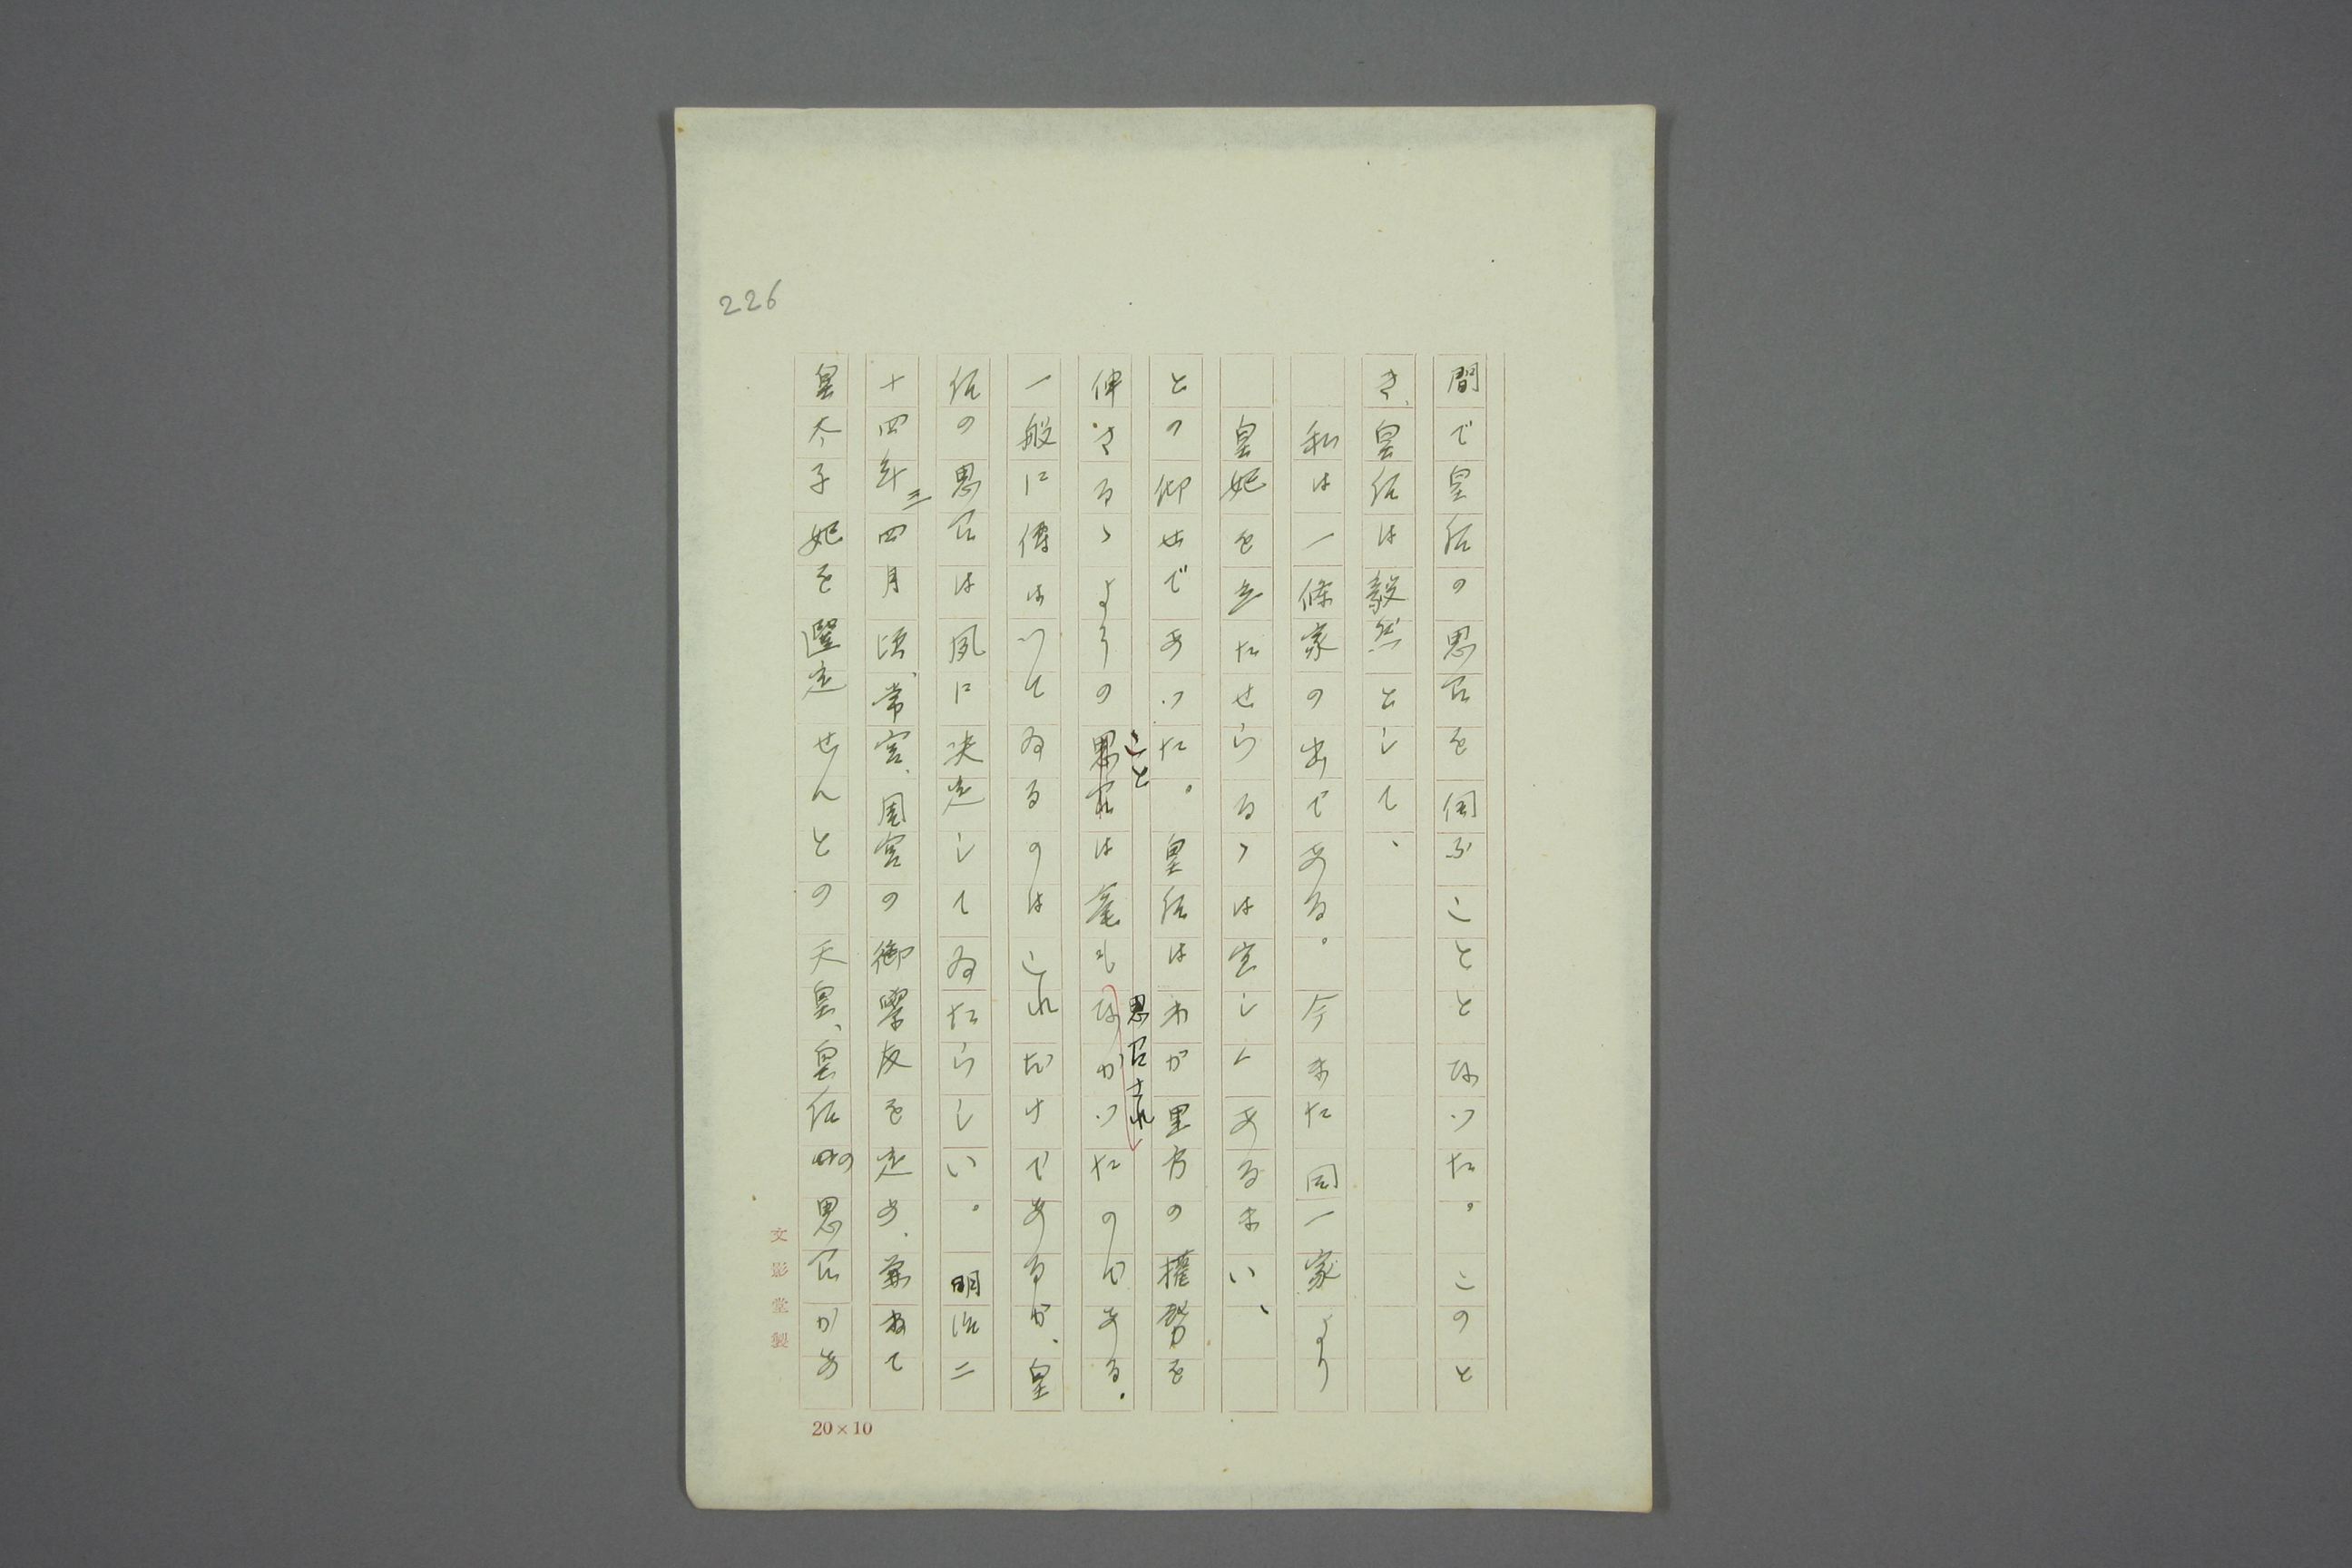 226
間で皇后の思召を伺ふこととなつた。このと
き、皇后は毅然として、
私は一條家の出である。今また同一家より
皇妃を立たせらるゝは宜しくあるまい、
との仰せであつた。皇后はわが里方の権勢を
伸さるゝようの思召は毫もなかつたのである。
こと
思召され
一般に傳はつてゐるのはこれだけであるが、皇
后の思召は夙に決定してゐたらしい。明治二
十四年三四月頃、常宮、周宮の御學友を定め、兼ねて
皇太子妃を選定せんとの天皇、皇后の思召があ
文影堂製
20×10